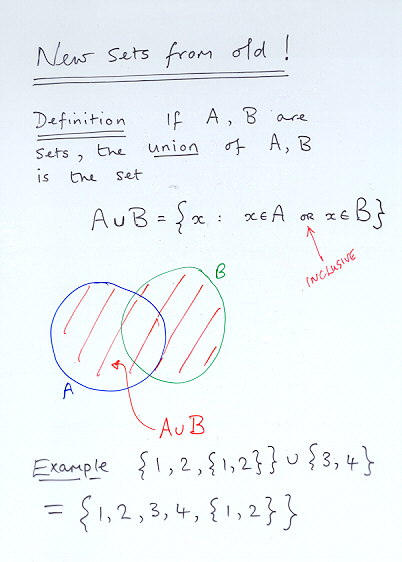 New sets from old!
Definition If A, B are
sets, the union of A, B
is the set
A∪B = {x : x∈A OR x∈B}
INCLUSIVE
B
A
A∪B
Example {1,2,{1,2}} ∪ {3,4}
= {1,2,3,4,{1,2}}